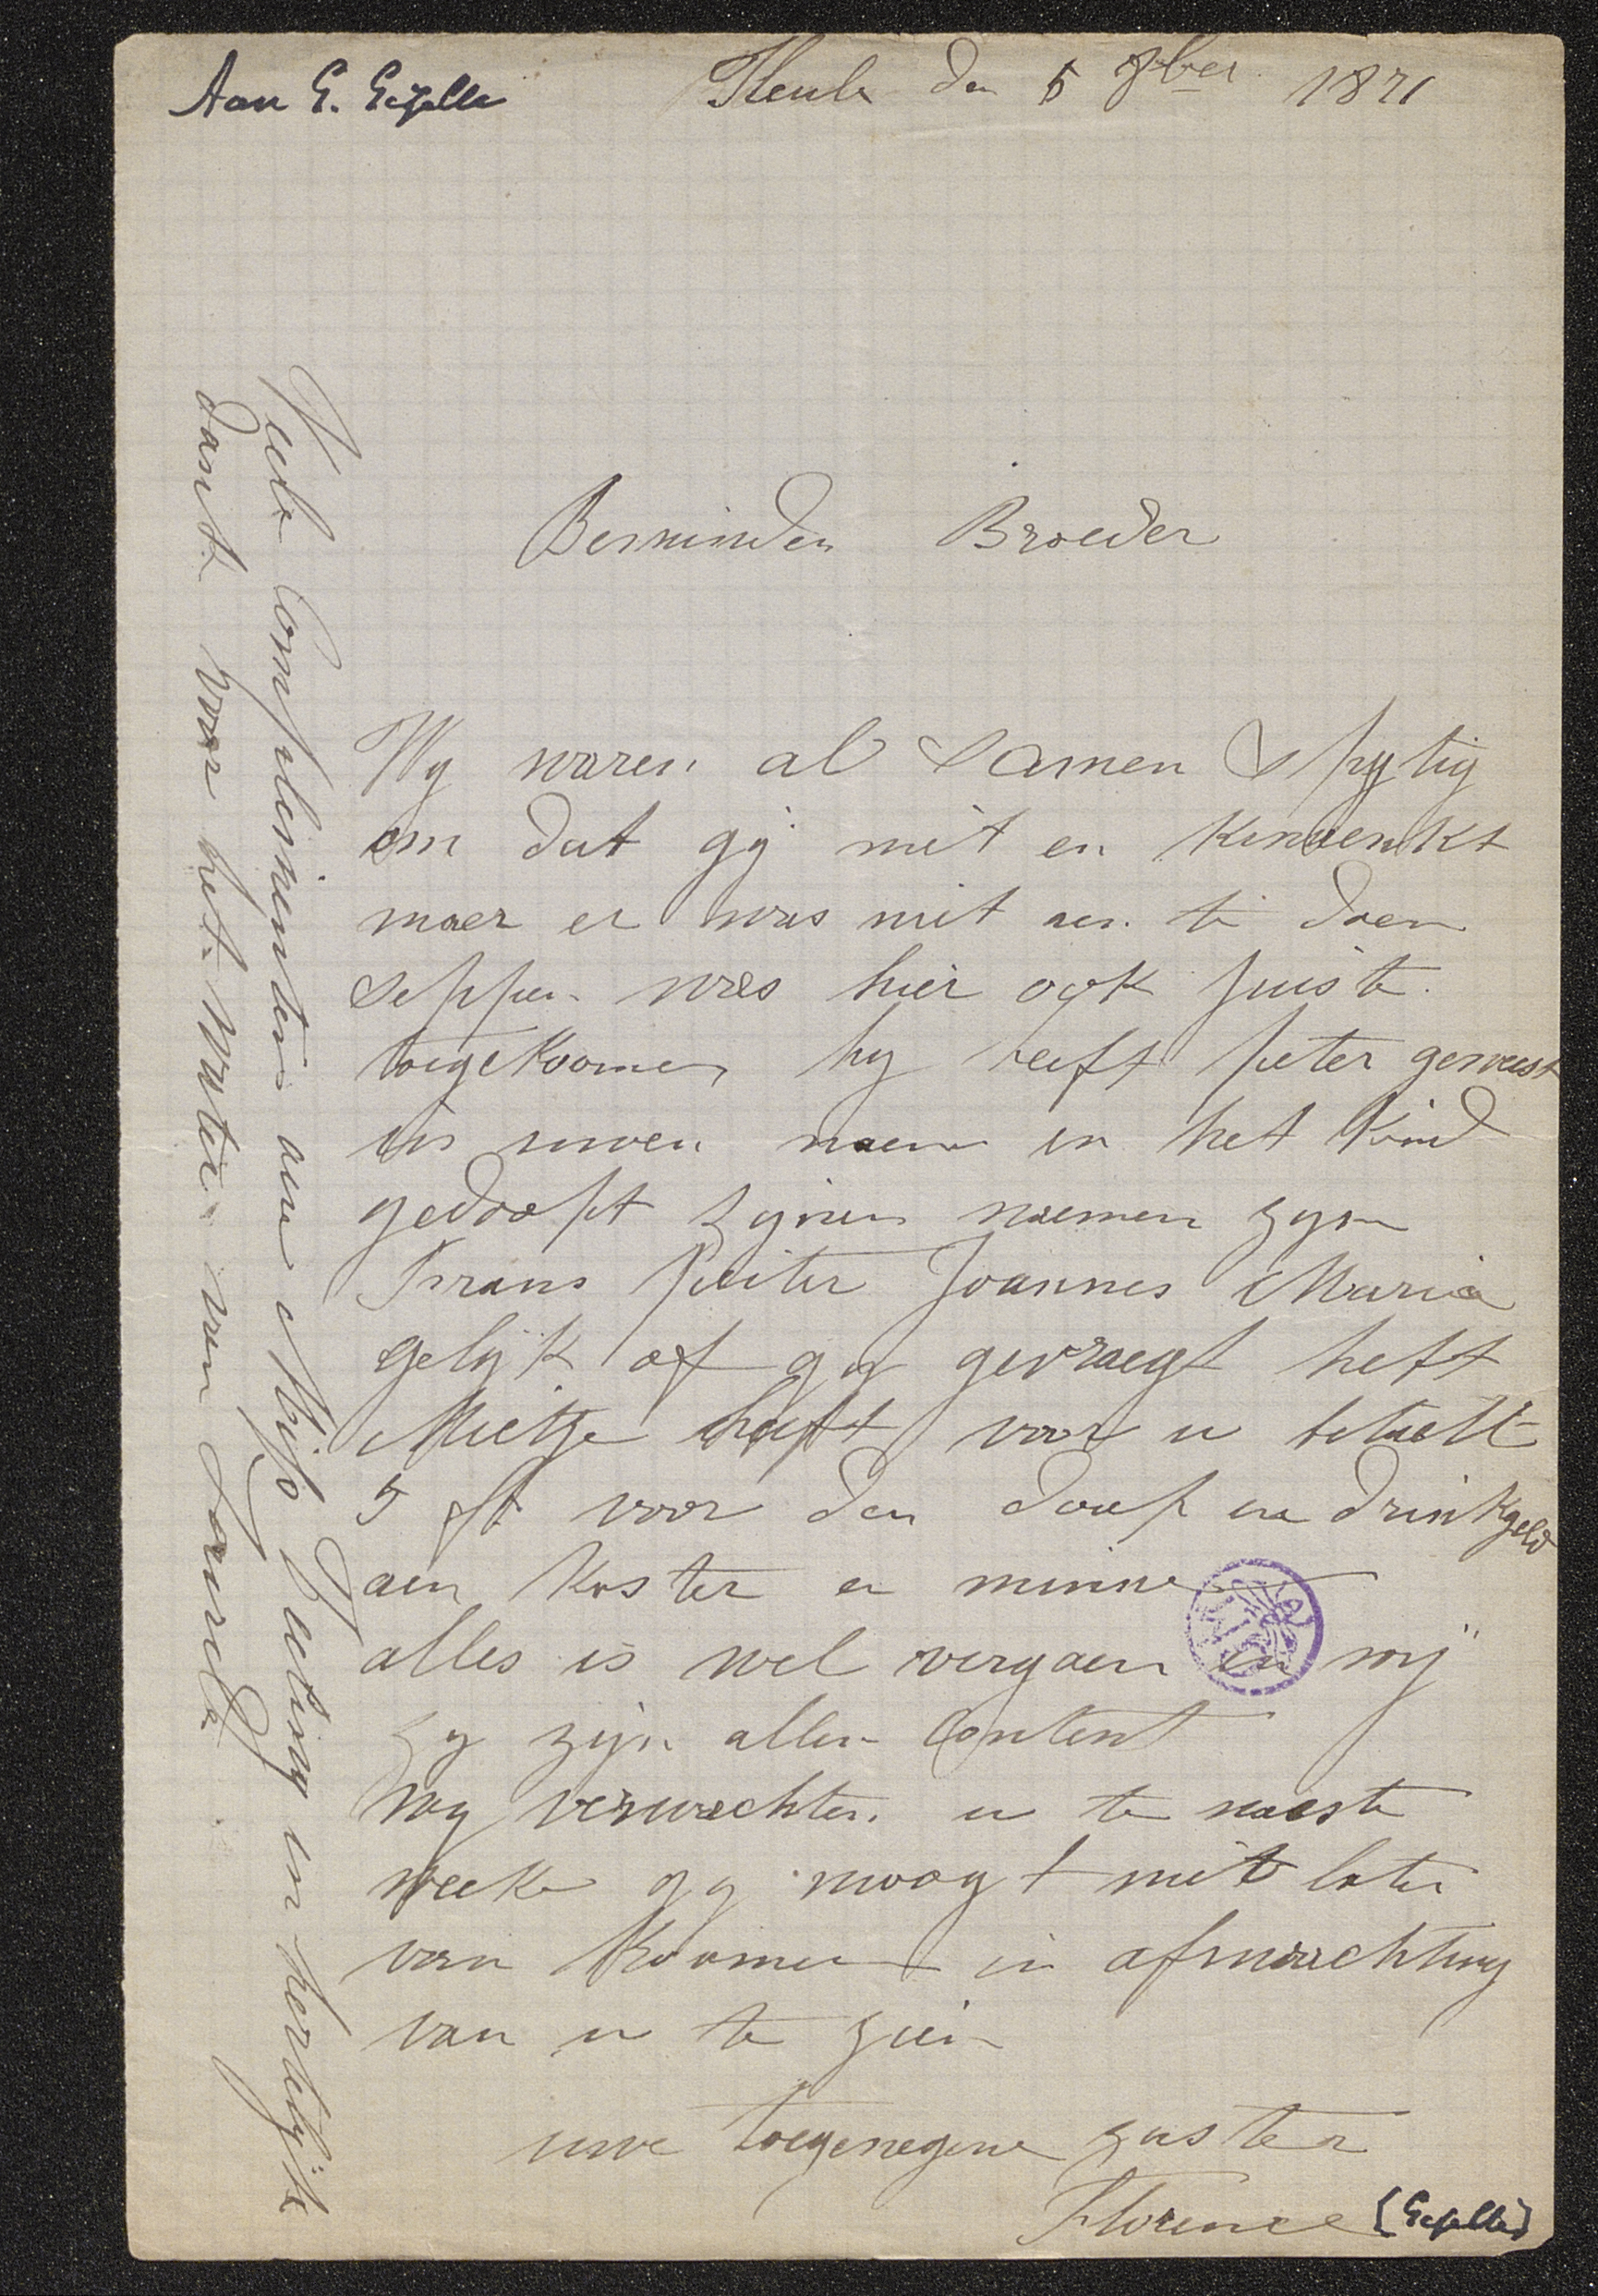 Aan G. Gezelle
Heule den 5 8ber 1871
Beminden Broeder
Wy waren al samen spytig
om dat gij niet en kondenkt
maer er was niet aen te doen
seppen was hier ook juiste
toegekoomen hy eeft peter geweest
in uwen naem en het kind
gedoopt zynen naemen zyn
Frans Peiter Joannes Maria
gelijk of gy gevraegt heft
Mietje heeft voor u betaelt
5 fr voor den doop en drinkgeld
aen koster en minne
alles is wel vergaen en wij
zy zijn allen Content
wy verwachten u te naeste
weeke gy moogt niet laten
van koomen in afwachting
van u te zien
uwe toegenegene zuster
Florence (Gezelle)
Veele Complementen aen Mijo Zeeling en hertelijk
dank voor het water van Lourde